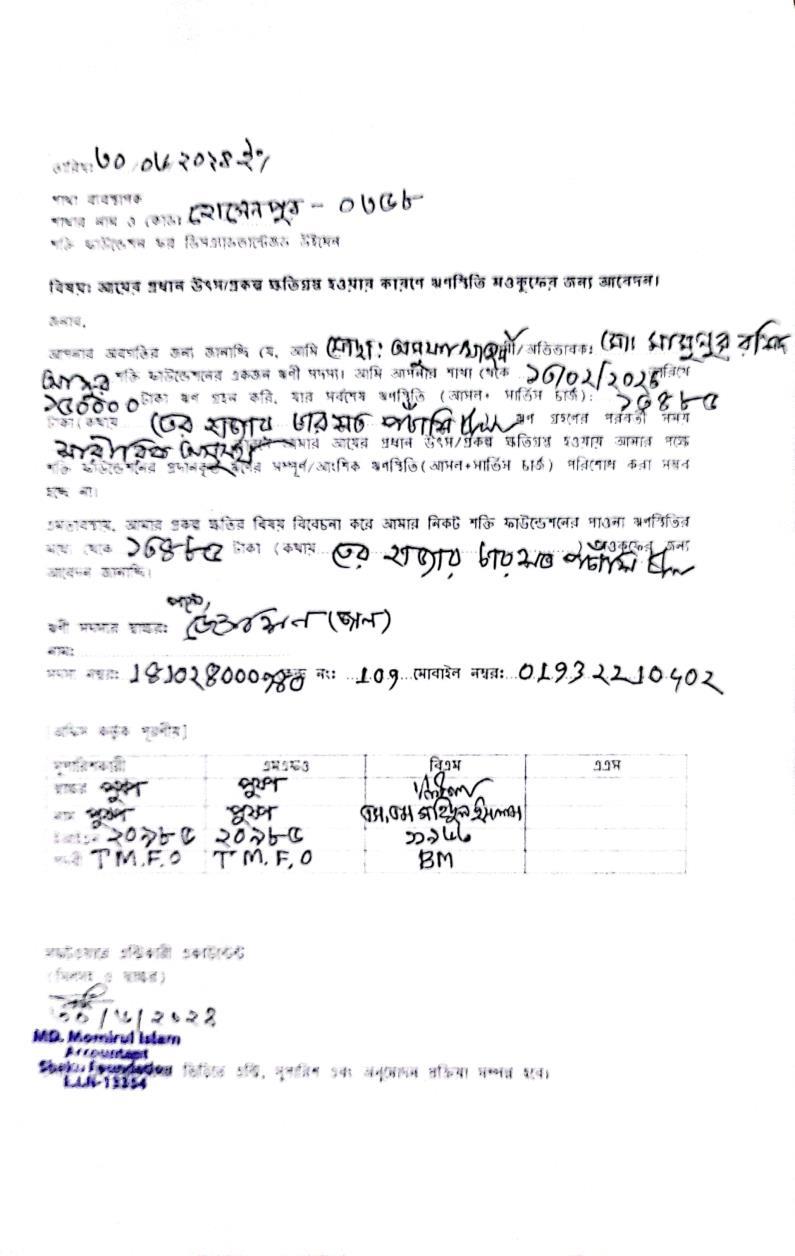 তারিখঃ ৩০/০৬/২০২৪ ইং
শাখা ব্যবস্থাপক
শাখার নাম ও কোডঃ হোসেনপুর - ০৩৫৮
শক্তি ফাউন্ডেশন ফর ডিসএ্যাডভান্টেজড উইমেন
বিষয়ঃ আয়ের প্রধান উৎস/প্রকল্প ক্ষতিগ্রস্ত হওয়ার কারণে ঋণস্থিতি মওকুফের জন্য আবেদন।
জনাব,
আপনার অবগতির জন্য জানাচ্ছি যে, আমি মোছাঃ /অভিভাবকঃ মোঃ মামুনুর রশিদ
শক্তি ফাউন্ডেশনের একজন ঋণী সদস্য। আমি আপনার শাখা থেকে ১৩/০২/২০২৩ তারিখে
টাকা ঋণ গ্রহন করি, যার সর্বশেষ ঋণস্থিতি (আসল+ সার্ভিস চার্জ): ১৩৪৮৫
টাকা (কথায় তের হাজার চারশত পঁচাশি ঋণ গ্রহণের পরবর্তী সময়
শারীরিক অসুস্থ আমার আয়ের প্রধান উৎস/প্রকল্প ক্ষতিগ্রস্ত হওয়ায় আমার পক্ষে
শক্তি ফাউন্ডেশনের প্রদানকৃত ঋণের সম্পূর্ণ/আংশিক ঋণস্থিতি (আসল+সার্ভিস চার্জ) পরিশোধ করা সম্ভব
হচ্ছে না।
এমতাবস্থায়, আমার প্রকল্প ক্ষতির বিষয় বিবেচনা করে আমার নিকট শক্তি ফাউন্ডেশনের পাওনা ঋণস্থিতির
মধ্য থেকে ১৩৪৮৫ টাকা (কথায় তের হাজার চারশত পঁচাশি ) মওকুফের জন্য
আবেদন জানাচ্ছি।
ঋণী সদস্যর স্বাক্ষরঃ
নামঃ
সদস্য নম্বরঃ নংঃ 109 মোবাইল নম্বরঃ 01932210402
[অফিস কর্তৃক পূরণীয়]
সুপারিশকারী এমএফও বিএম এএম
স্বাক্ষর পুষ্প পুষ্প
নাম পুষ্প পুষ্প এস,এম শহিদুল ইসলাম
২০৯৮৫ ২০৯৮৫ ১১৯৬৬
পদবী T M.F.O T M.F.O BM
সফটওয়্যারে এন্ট্রিকারী একাউন্টেন্ট
(সিলসহ ও স্বাক্ষর)
৩০/৬/২০২৪
MD. Momirul Islam
Accountant
Shakti Foundation ভিত্তিতে এন্ট্রি, সুপারিশ এবং অনুমোদন প্রক্রিয়া সম্পন্ন হবে।